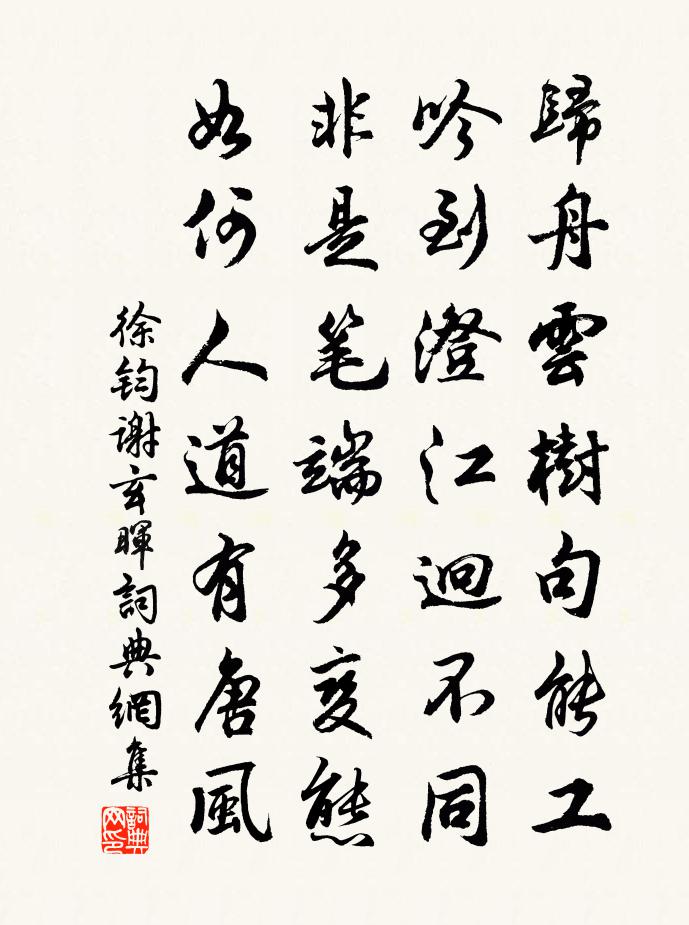 歸舟雲樹句能工
吟到澄江迥不同
非是笔端多变態
如何人道有唐風
徐鈞謝玄暉詞典網集
詞典网印